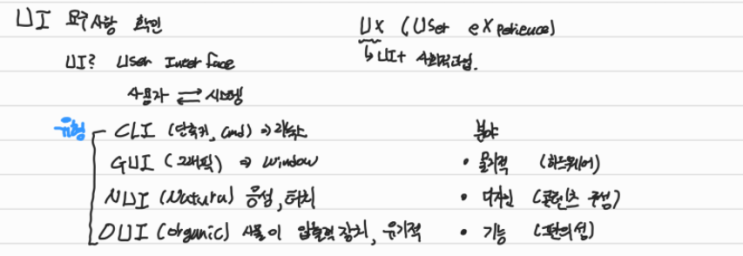 UI 요구사항 확인
UX (USer eXperience)
↳ UI+ 사회적과업.
UI? User Interface
사용자 ⇄ 시스템
유형
CLI (단축키, cmd) ⇒ 리눅스
GUI (그래픽) ⇒ window
NUI (Natural) 음성, 터치
OUI (organic) 사물이 입출력장치, 유기적
분야
• 물리적 (하드웨어)
• 디자인 (콘텐츠 구성)
• 기능 (편의성)